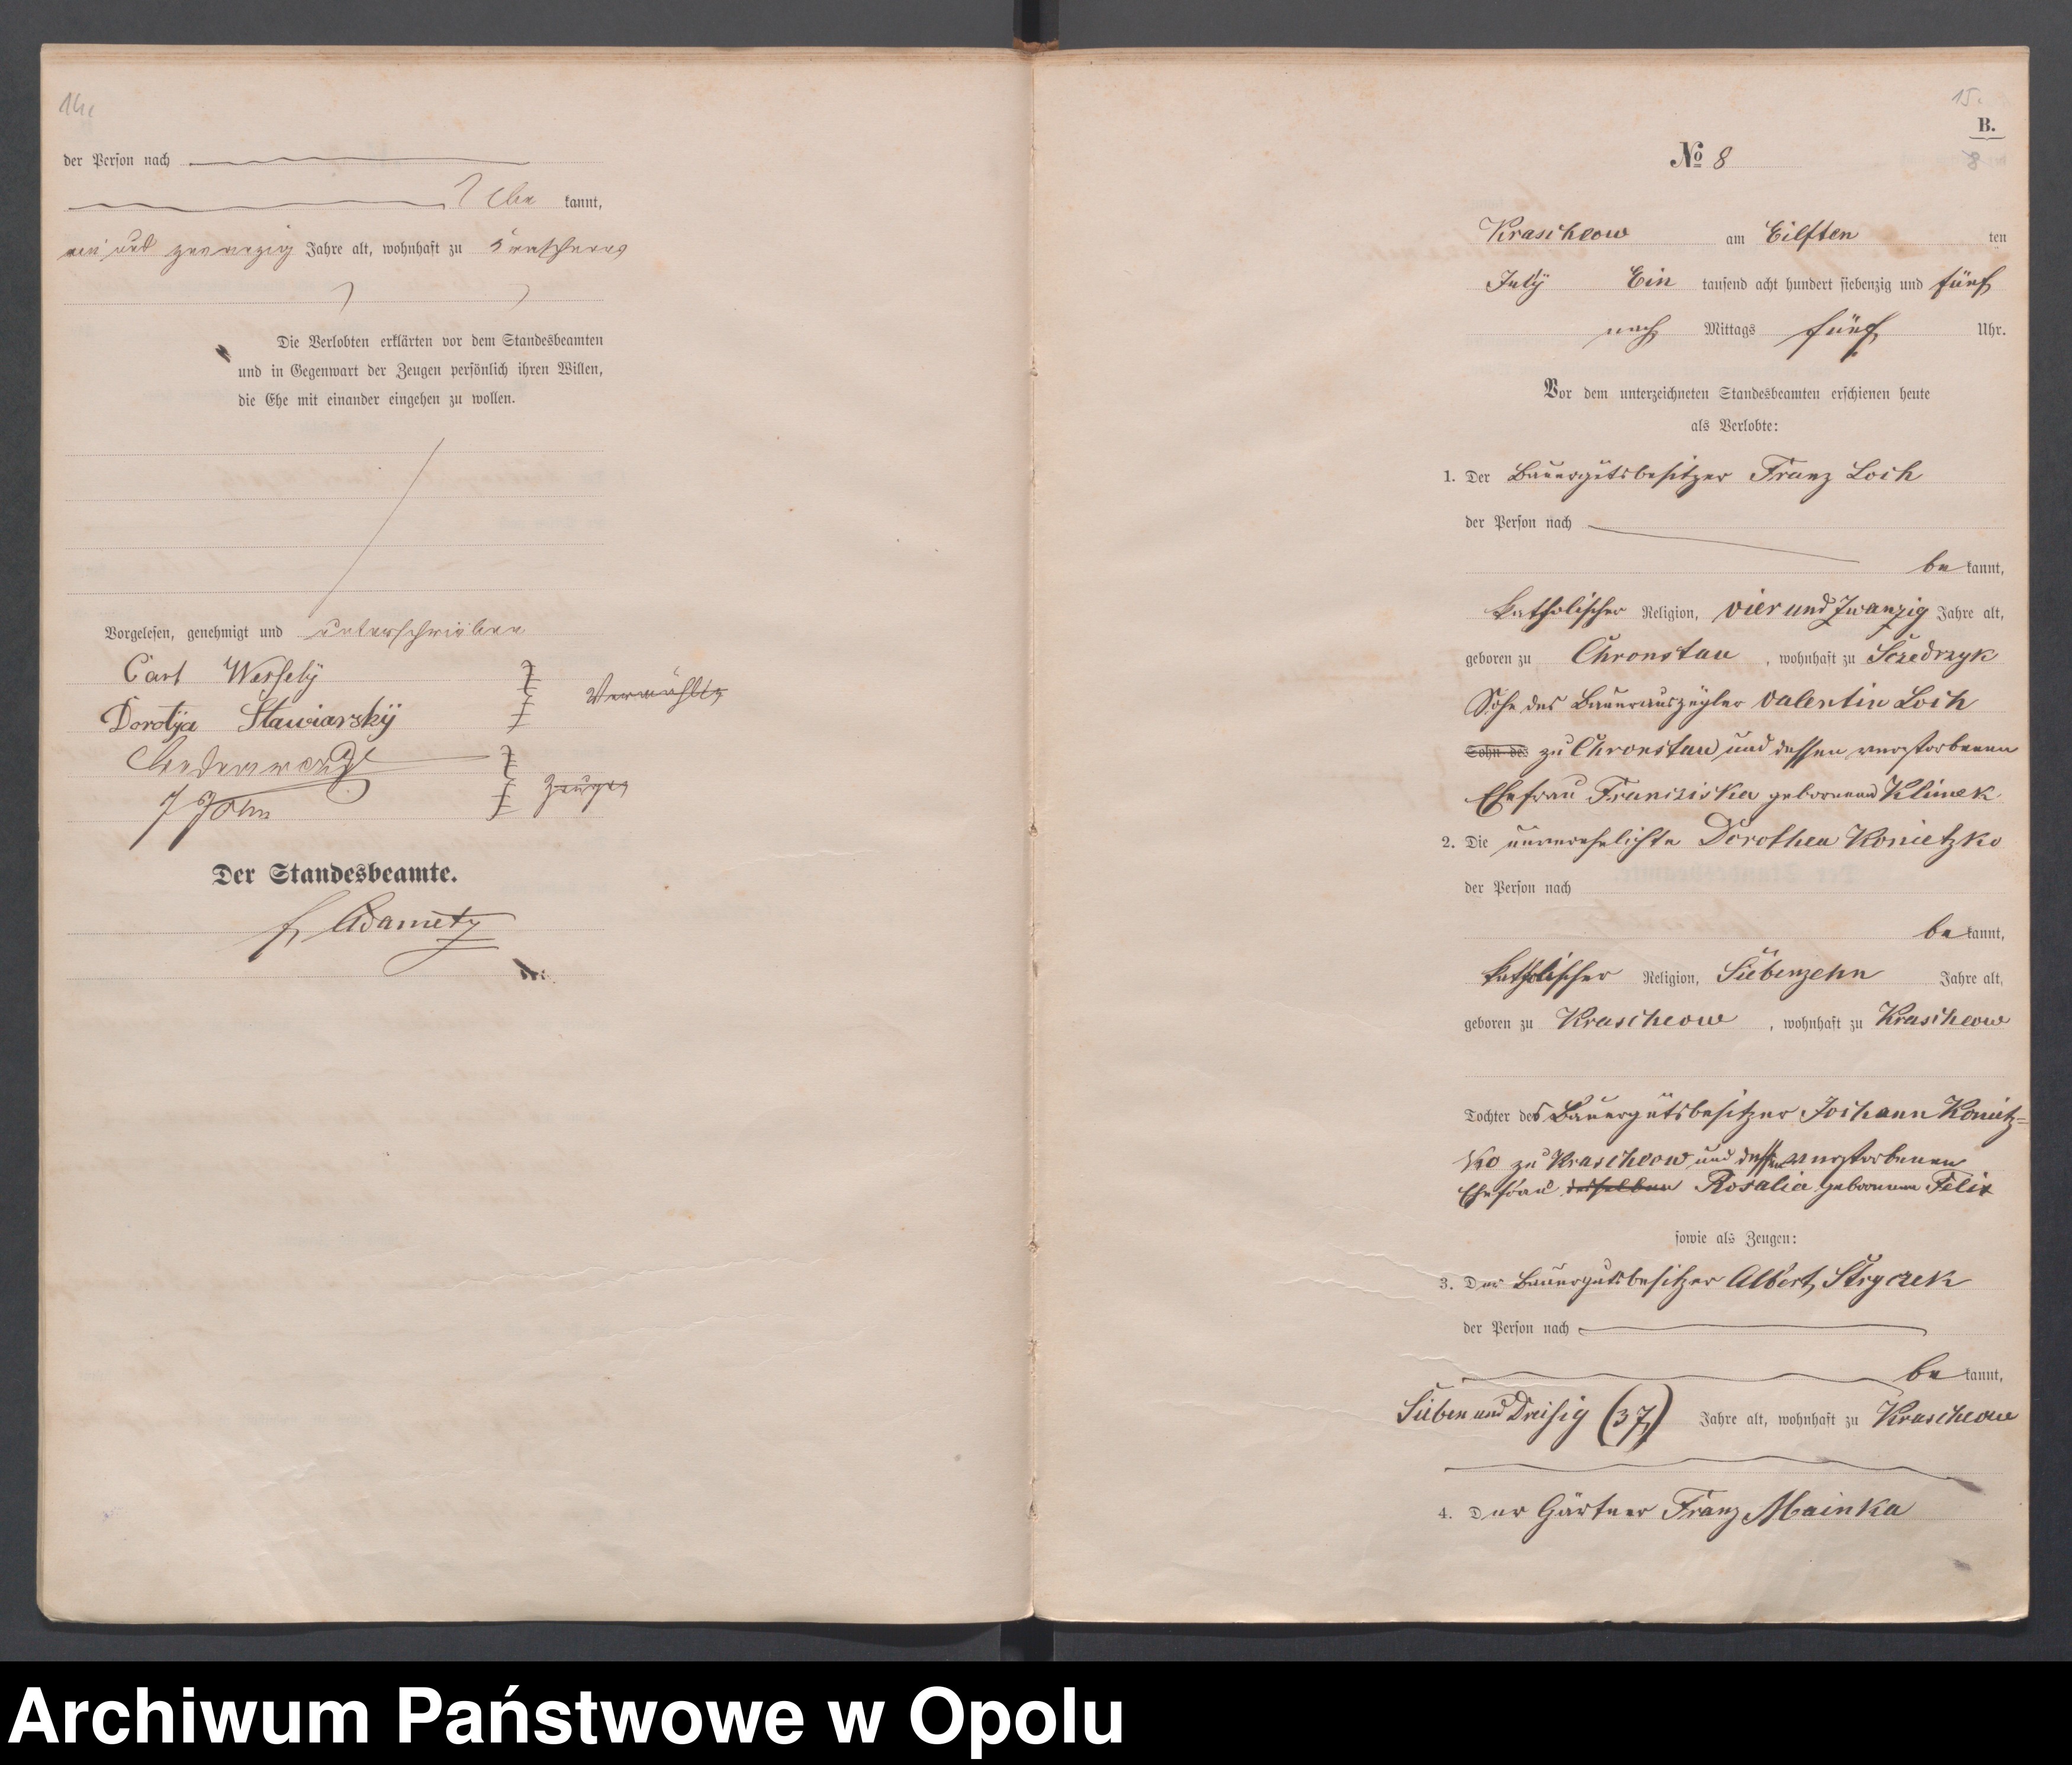 14.
der Person nach
kannt,
ein und zwanzig Jahre alt, wohnhaft zu Krascheow
Die Verlobten erklärten vor dem Standesbeamten
und in Gegenwart der Zeugen persönlich ihren Willen,
die Ehe mit einander eingehen zu wollen.
Vorgelesen, genehmigt und unterschrieben
Carl Wessely
Dorotÿa Stawiarskÿ
Vermählte
J John
Zeugen
Der Standesbeamte.
Adametz
15.
B.
8
No 8
Krascheow am Eilften ten
Julÿ Ein tausend acht hundert siebenzig und fünf
nach Mittags fünf Uhr.
Vor dem unterzeichneten Standesbeamten erschienen heute
als Verlobte:
1. Der Bauergutsbesitzer Franz Loch
der Person nach
be kannt,
katholischer Religion, vier und Zwanzig Jahre alt,
geboren zu Chronstau, wohnhaft zu Sczedrzyk
Sohn des Bauerauszügler Valentin Loch
Sohn des zu Chronstau und dessen verstorbenen
Ehefrau Franciska geborenen Klimek
2. Die unverehelichte Dorothea Konietzko
der Person nach
be kannt,
katholischer Religion, Siebenzehn Jahre alt,
geboren zu Krascheow, wohnhaft zu Krascheow
Tochter des Bauergutsbesitzer Johann Konietz=
ko zu Krascheow und dessen verstorbenen
Ehefrau desselben Rosalia geborenen Felix
sowie als Zeugen:
3. Der Bauergutsbesitzer Albert Stryczek
der Person nach
be kannt,
Sieben und Dreisig (37) Jahre alt, wohnhaft zu Krascheow
4. Der Gärtner Franz Mainka
Archiwum Państwowe w Opolu